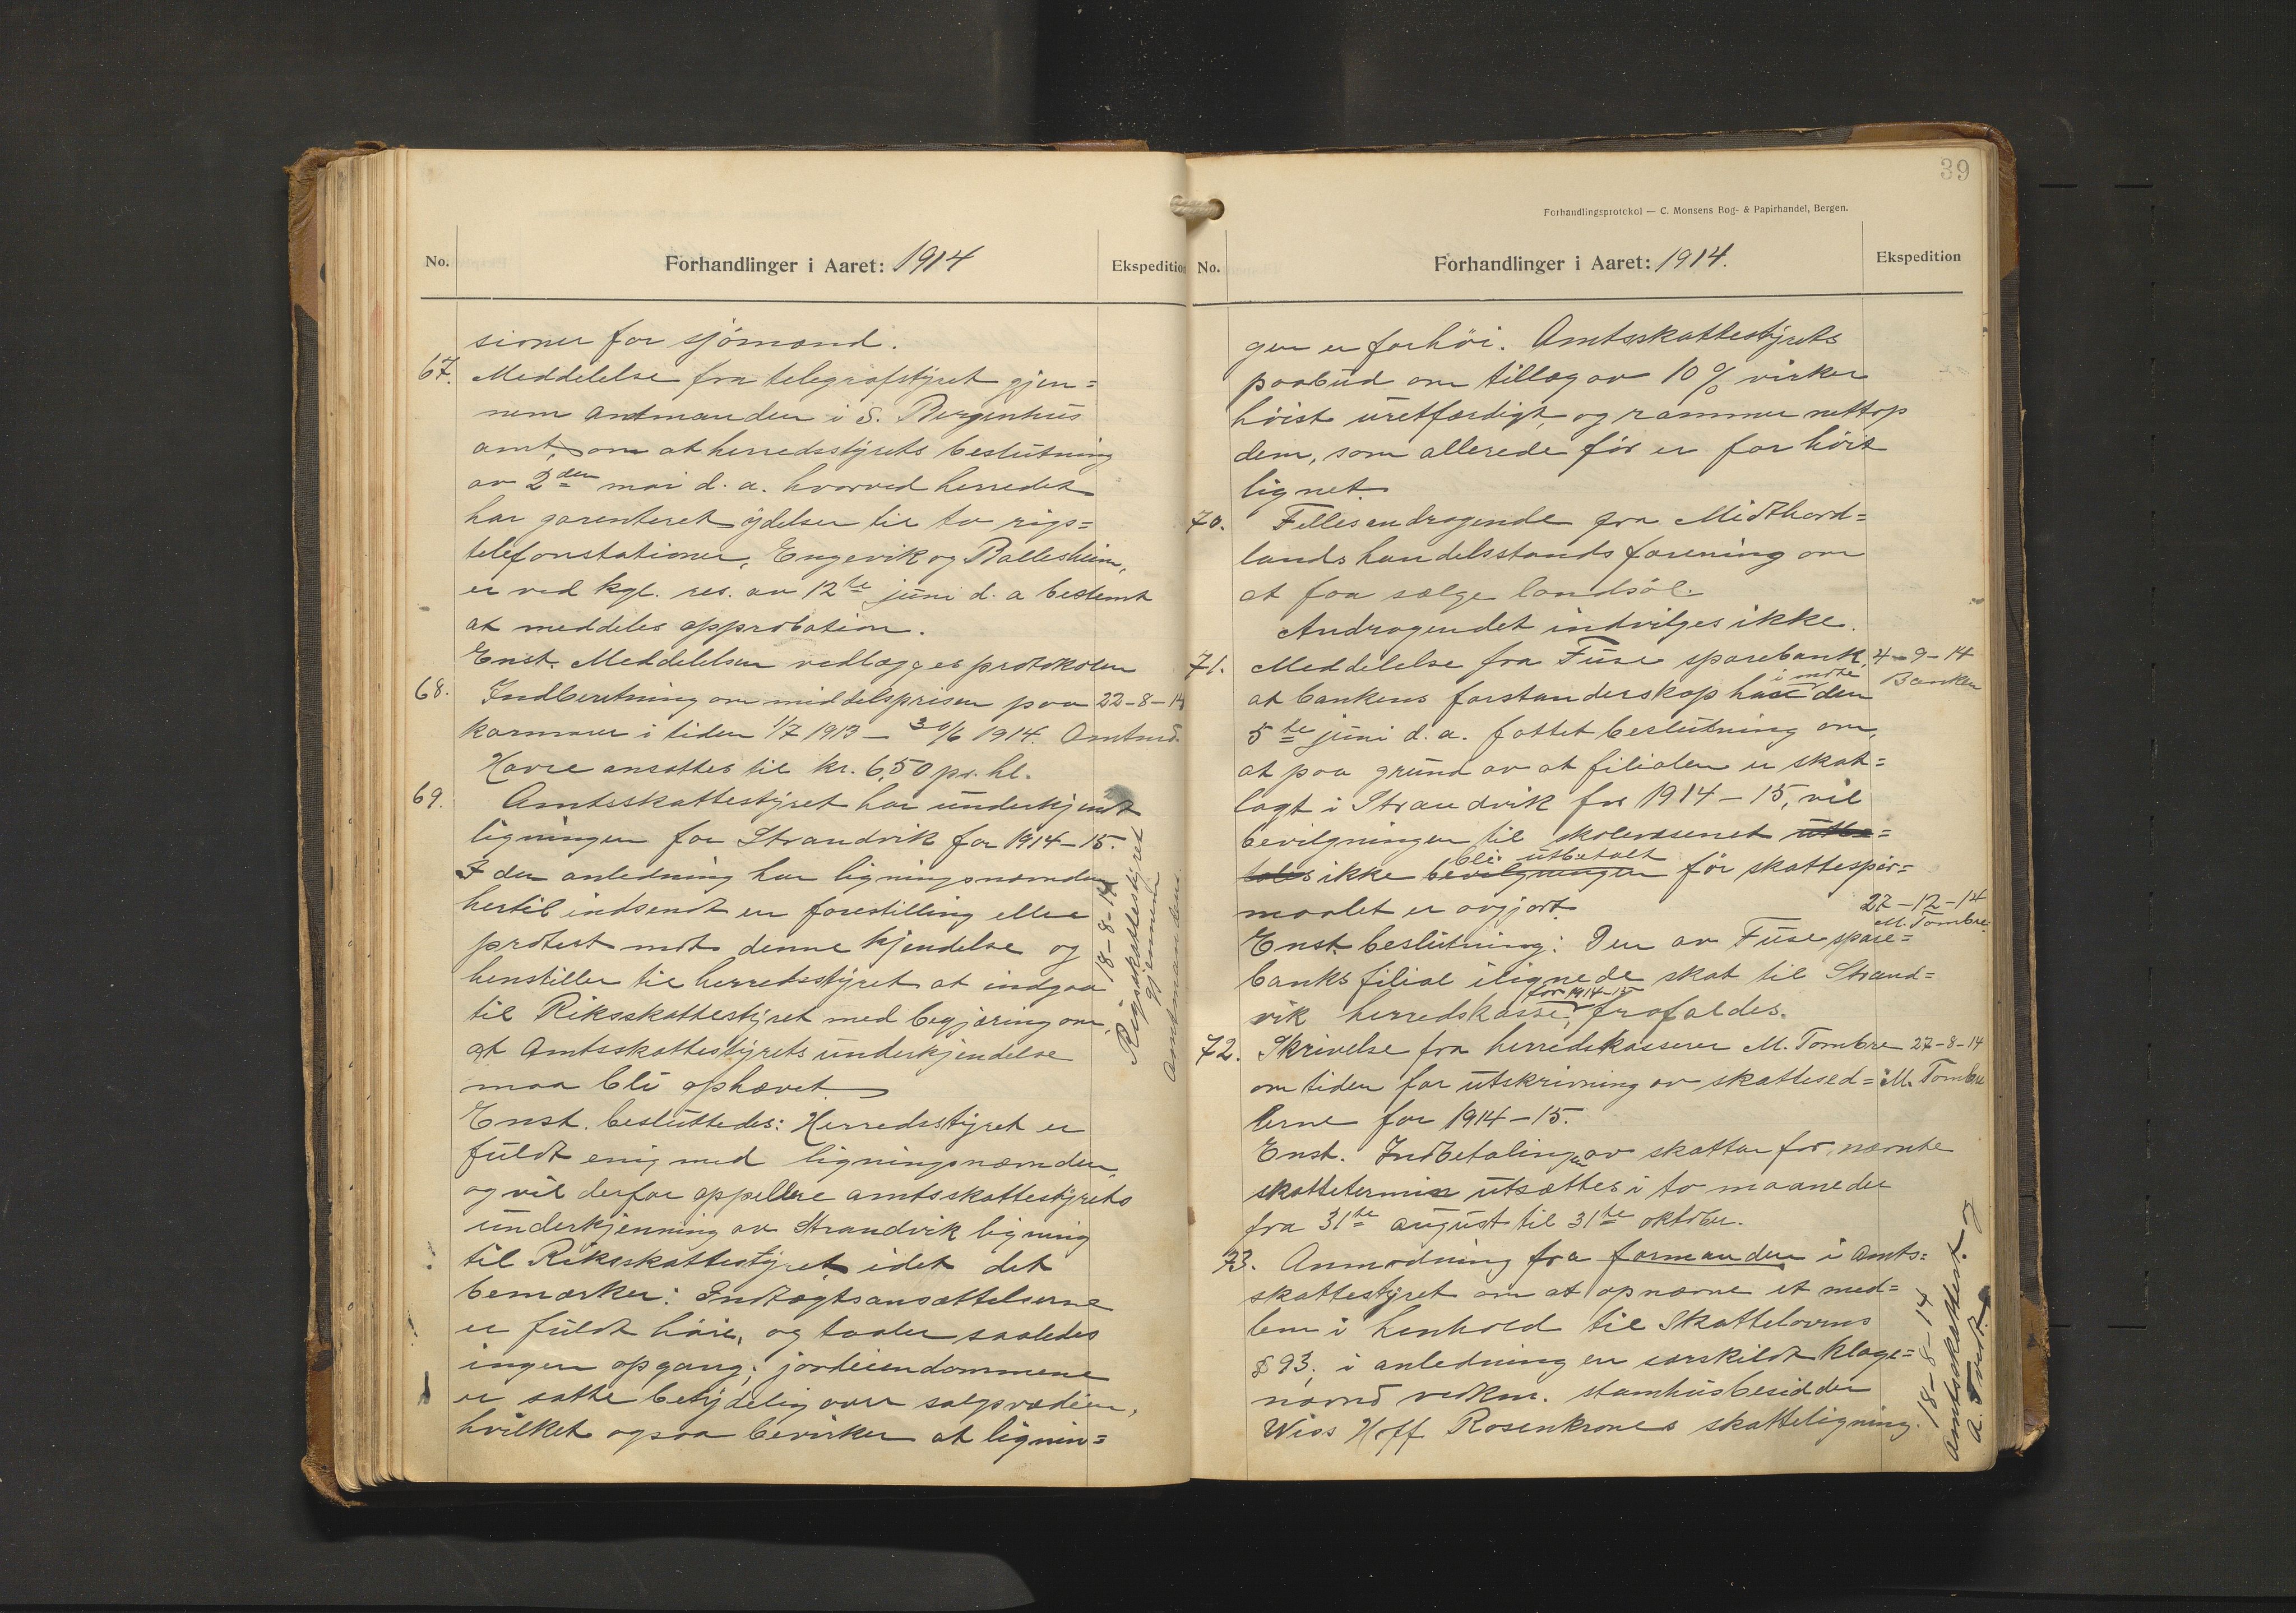 No.
Forhandlinger i Aaret: 1914
Ekspedition
sioner for sjömænd.
67. Meddelelse fra telegrafstyret gjen=
nem amtmanden i S. Bergenhus
amt, om at herredsstyrets beslutning
av 2den mai d. a. hvorved herredet
har garenteret ydelser til to rigs=
telefonstationer, Engevik og Ballesheim,
er ved kgl. res. av 12te juni d. a bestemt
at meddeles approbation.
Enst. Meddelelsen vedlægges protokolen
68. Indberetning om middelsprisen paa
kornvarer i tiden 1/7 1913 – 30/6 1914.
Havre ansattes til kr. 6,50 pr. hl.
22-8-14
Amtmd.
69. Amtsskattestyret har underkjendt
ligningen for Strandvik for 1914–15.
I den anledning har ligningsnævnden
hertil indsendt en forestilling eller
protest mot denne kjendelse og
henstiller til herredsstyret at indgaa
til Riksskattestyret med begjæring om,
at Amtsskattestyrets underkjendelse
maa bli ophævet.
Enst. besluttedes: Herredsstyret er
fuldt enig med ligningsnævnden,
og vil derfor appellere amtsskattestyrets
underkjenning av Strandvik ligning
til Riksskattestyret idet det
bemærker: Indtægtsansættelserne
er fuldt höie, og taaler saaledes
ingen opgang; jordeiendommene
er satte betydelig over salgsværdien,
hvilket ogsaa bevirker at lignin=
18-8-14
Rigsskattestyret
gjennem
Amtmanden.
39
Forhandlingsprotokol — C. Monsens Bog- & Papirhandel, Bergen.
No.
Forhandlinger i Aaret: 1914.
Ekspedition
gen er for höi. Amtsskattestyrets
paabud om tillæg av 10 % virker
höist uretfærdigt, og rammer nettop
dem, som allerede för er for höit
lignet.
70. Fellesandragende fra Midthord=
lands handelsstands forening om
at faa sælge landsöl.
Andragendet indvilges ikke.
71. Meddelelse fra Fuse sparebank,
4-9-14
Banken
at bankens forstanderskap har i möte den
5te juni d. a. fattet beslutning om,
at paa grund av at filialen er skat=
lagt i Strandvik for 1914–15, vil
bevilgningen til skolevæsenet utbe=
tales ikke bevilgningen bli utbetalt för skattespör=
maalet er avgjort.
22-12-14
M. Tombre
Enst. beslutning: Den av Fuse spare=
banks filial ilignede skat til Strand=
vik herredskasse for 1914-15, frafaldes.
72. Skrivelse fra herredskasserer M. Tombre
om tiden for utskrivning av skattesed=
lerne for 1914–15.
27-8-14
M. Tombre
Enst. Indbetalingen av skatten for nævnte
skattetermin utsættes i to maaneder
fra 31te august til 31te oktober.
73. Anmodning fra formanden i Amts=
skattestyret om at opnævne et med=
lem i henhold til Skattelovens
§ 93, i anledning en særskildt klage=
nævnd vedkm. stamhusbesidder
Wiss Hoff Rosenkrones skatteligning.
18-8-14
Amtsskattest. og
A. Tveit.